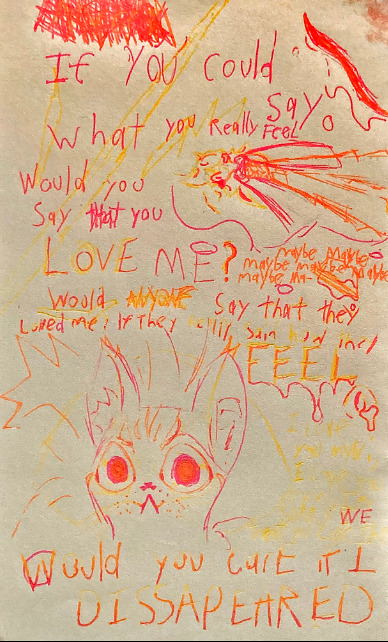 If YOU COULD
Say
What you Really FEEL
Would you
Say that you
LOVE ME?
maybe Maybe
maybe maybe Maybe
maybe Ma- Maybe
Would ANYONE Say that they
Loved me; If they how they
FEEL
WE
Would you care if I
DISSAPEARED